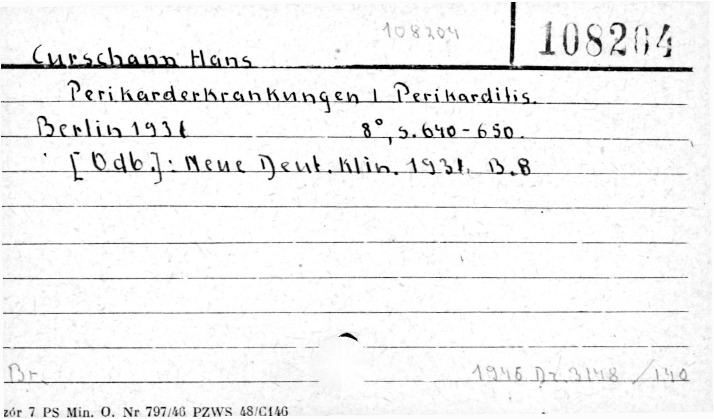 108204
108204
Curschann Hans
Perikarderkrankungen / Perikarditis.
Berlin 1931 8°, s. 640-650.
[Odb.]: Neue Deut. Klin. 1931. B.8
Br. 1946 Dr. 3148 /140
zór 7 PS Min. O. Nr 797/46 PZWS 48/C146